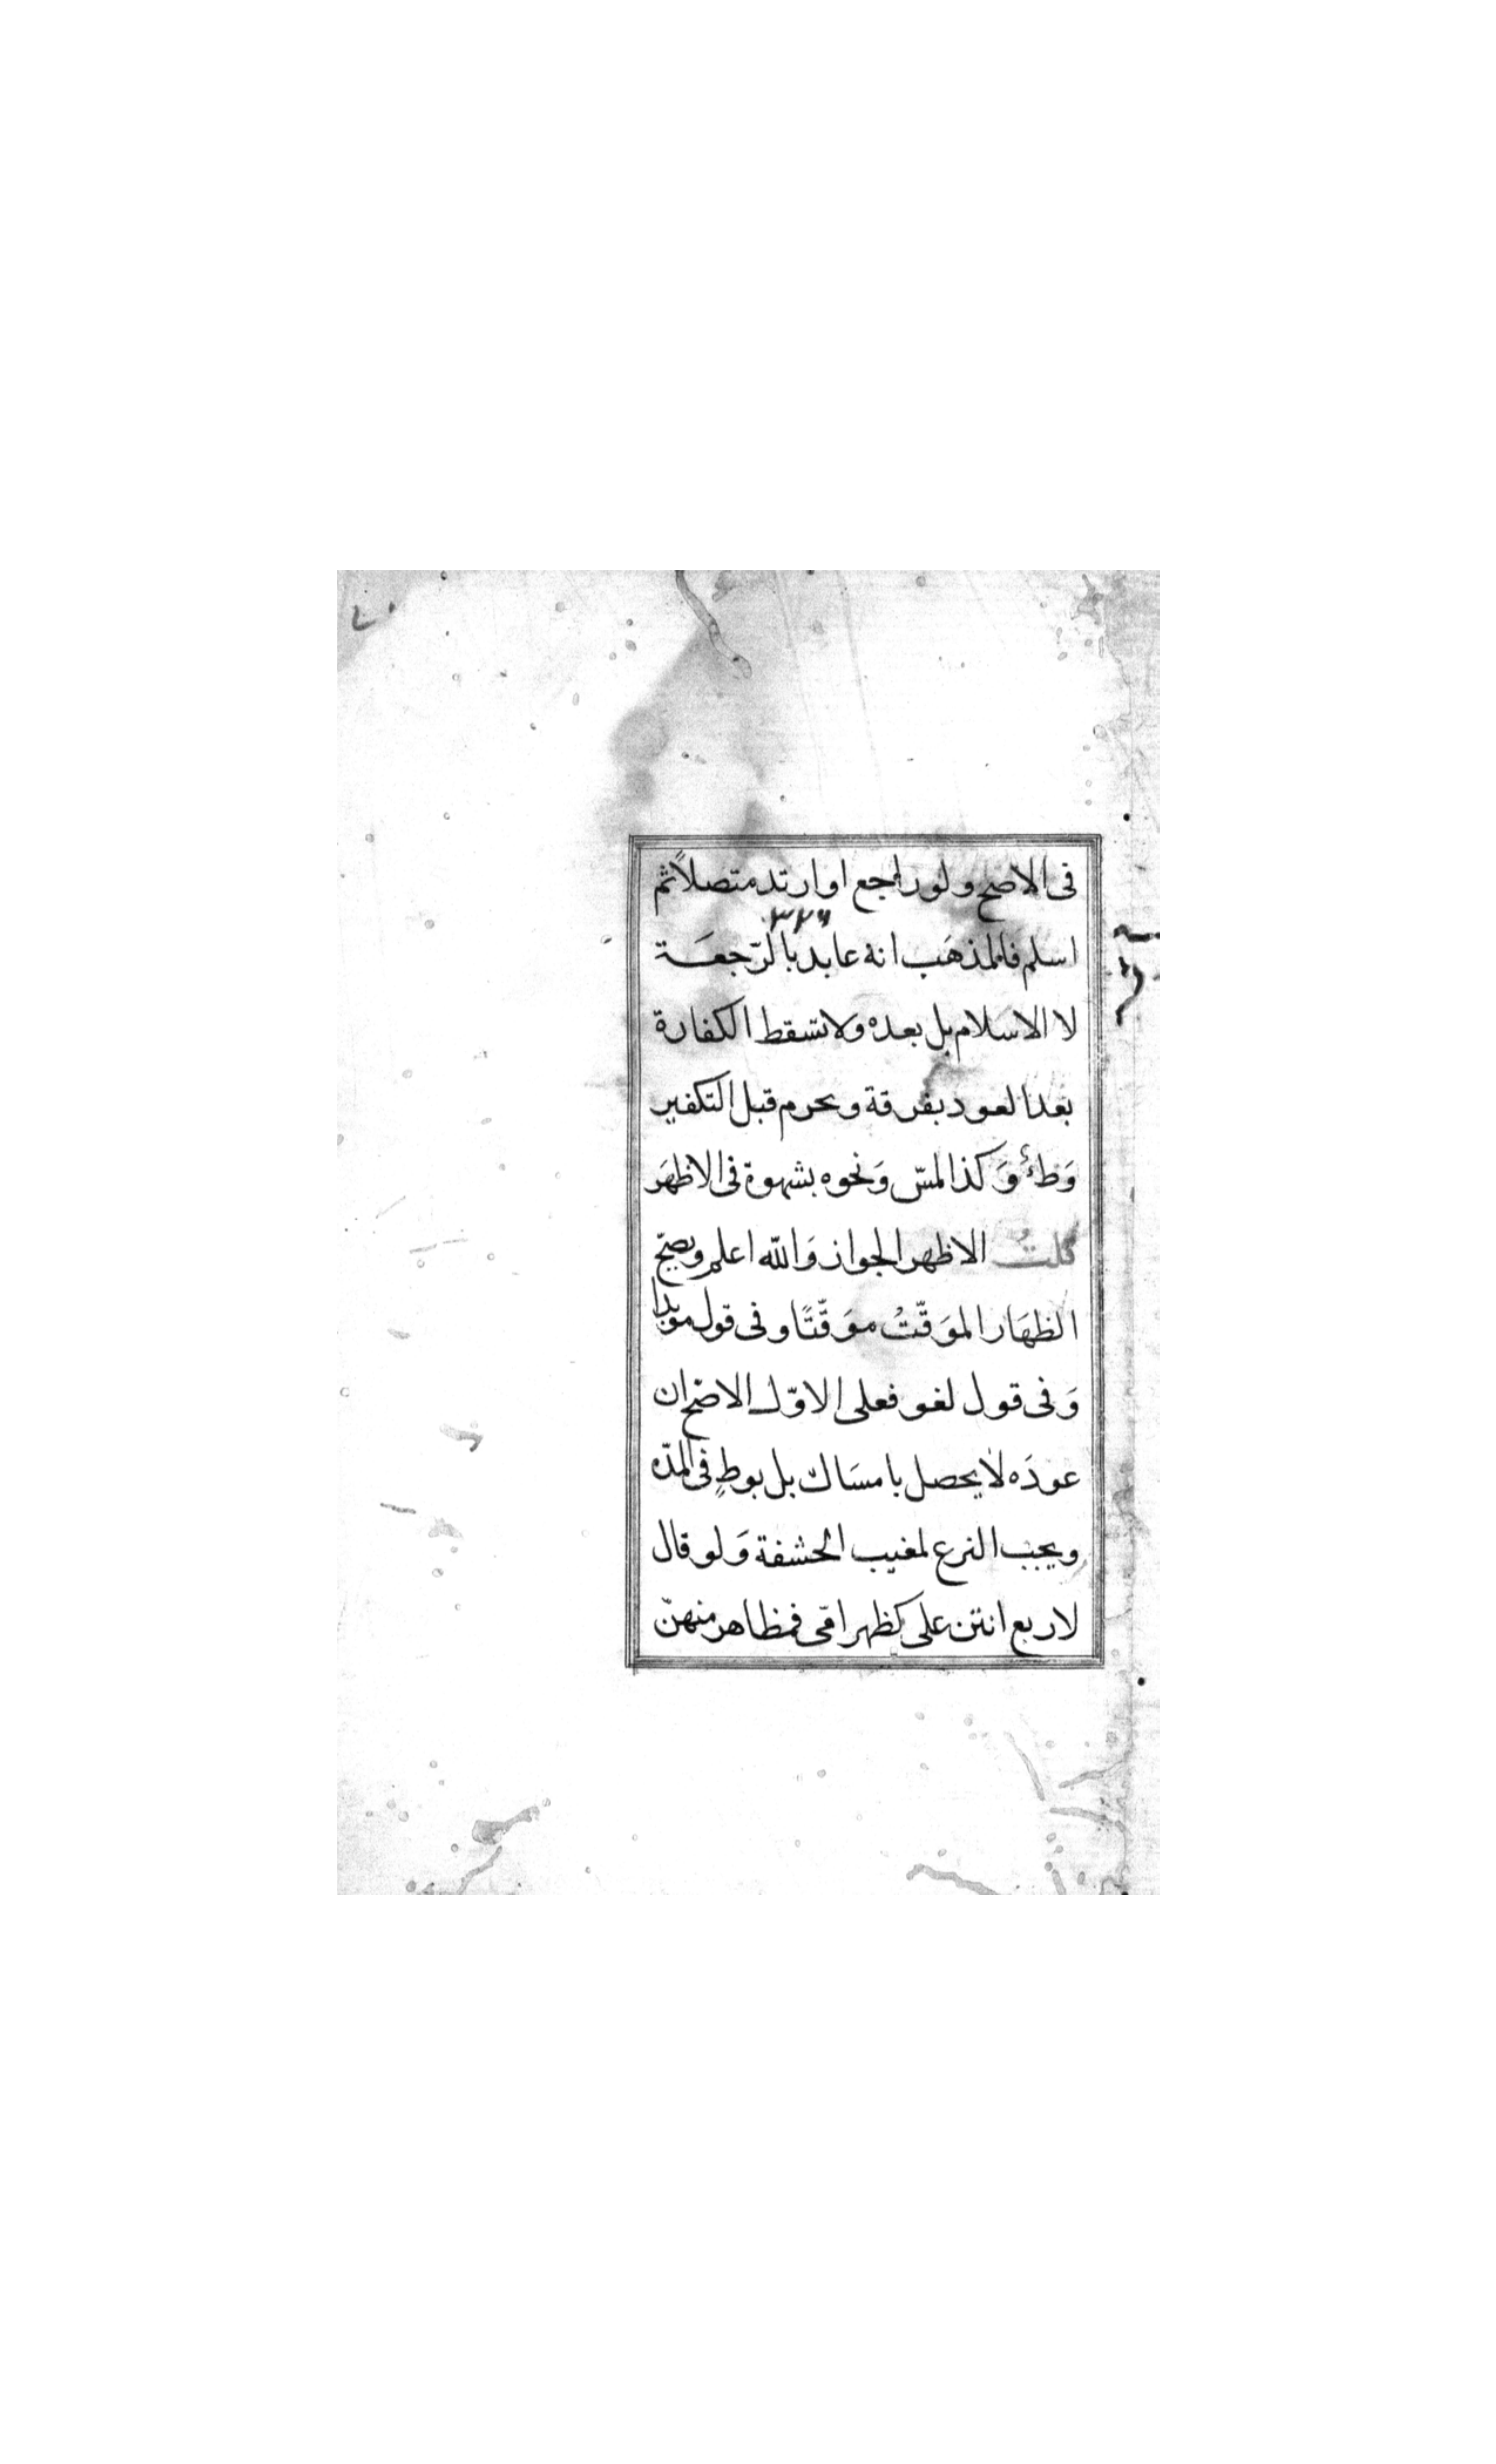 فى الاصح ولو راجع او ارتد متصلاً ثم
٣٢٦
اسلم فالمذهَب انه عايد بالرّجعَة
لا الاسلام بل بعده ولا تسقط الكفارة
بعد العود بفرقة ويحرم قبل التكفير
وَطئ وَكذا المسّ وَنحوه بشهوة فى الاظهَر
قلتُ الاظهر الجواز وَالله اعلم ويصحّ
الظهَار الموَقّتُ موَقّتًا وفى قول موبدا
وَفى قول لغو فعلى الاوّل الاصح ان
عودَه لا يحصل بامسَاك بل بوطٍ فى المدّه
ويجب النزع لمغيب الحشفة وَلو قال
لاربع انتن على كظهر امّى فمظاهر منهنّ